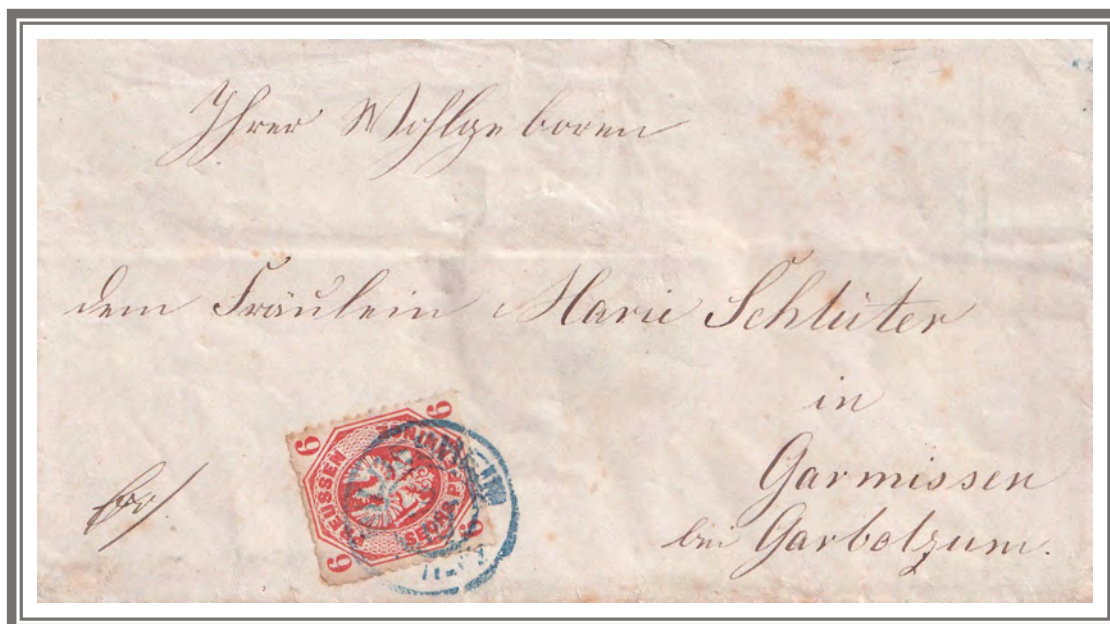 Ihrer Wohlgeboren
dem Fräulein Marie Schlüter
in
Garmissen
bei Garbolzum.
6 6
PREUSSEN
SECHS
6 6